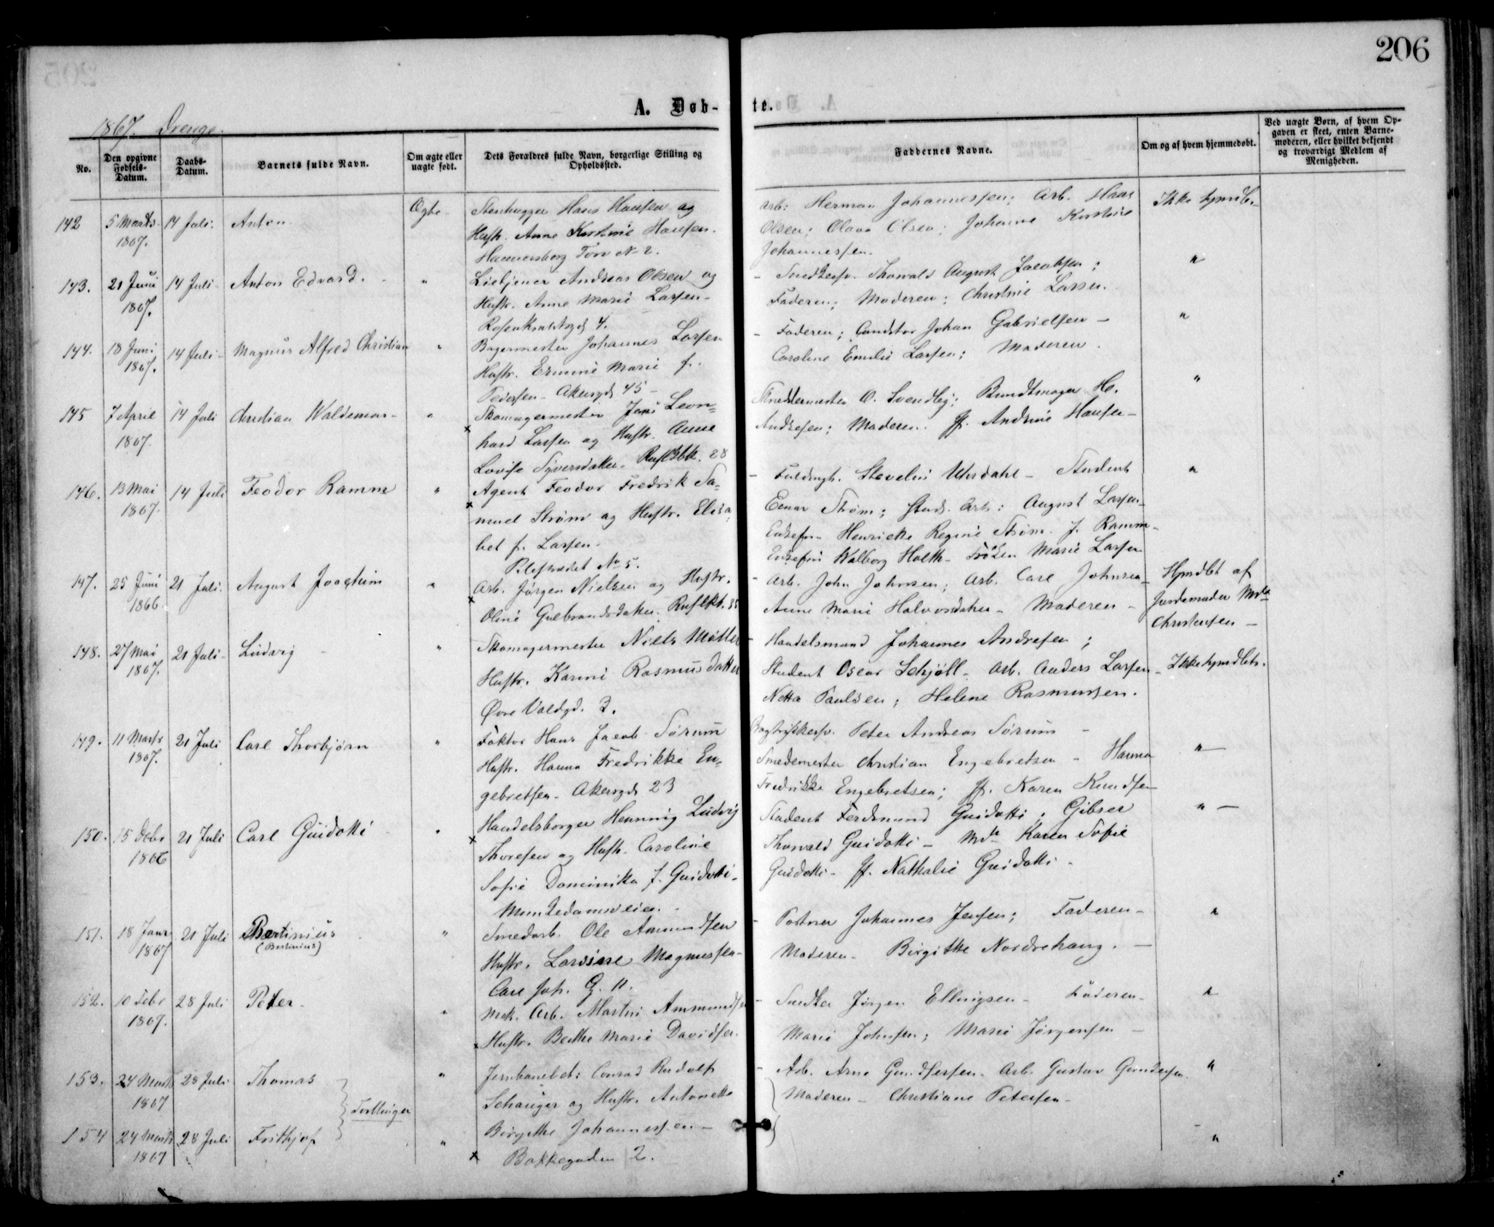 206
A. Døb-
te.
1867. Drenge.
No.
Den opgivne Fødsels-Datum.
Daabs-Datum.
Barnets fulde Navn.
Om ægte eller uægte født.
Dets Forældres fulde Navn, borgerlige Stilling og Opholdssted.
Faddernes Navne.
Om og af hvem hjemmedøbt.
Ved uægte Børn, af hvem Opgaven er skeet, enten Barnemoderen, eller hvilket bekjendt og troværdigt Medlem af Menigheden.
142 5 Marts 14 Juli. Anton Ægte Stenhugger Hans Hansen og Arb: Herman Johannessen; Arb. Hans Ikke hjmdb.
1867. Hustr. Anne Kirstine Hansen. Olsen; Olava Olsen; Johanne Kirstine
Hammersborg Torv No 2. Johannessen.
143. 21 Juni 14 Juli Anton Edvard. " Andreas Olsen og - Smedesv. Thorvald August Jacobsen; "
1867. Hustr. Anne Marie Larsen - Faderen; Moderen; Christine Larsen.
Rosenkrantzgd 4.
144. 18 Juni 14 Juli - Magnus Alfred Christian " Bagermester Johannes Larsen - Faderen; Johan Gabrielsen - "
1867. Hustr. Marie f. Caroline Emilie Larsen; Moderen.
Pedersen - Akersgd 45 -
145 7 April 14 Juli Christian Waldemar - " Skomagermester Jens Leon= O. Svendby; Bundtmager H. "
1867. x hard Larsen og Hustr. Anne Andresen; Moderen. Jf. Andrine Hansen -
Lovise Syversdatter. 28
146. 13 Mai 14 Juli Feodor Ramm " Agent Feodor Fredrik Sa= - Student "
1867. x muel Strøm og Hustr. Elisa= Einar Strøm; Stud. Arb: August Larsen -
bet f. Larsen. Henrikke Regine Strøm. f. Ramm -
No 5. Walborg Holth - Marie Larsen
147. 25 Juni 21 Juli. August Joachim " Arb. Jørgen Nielsen og Hustr. - Arb. John Johnsen; Arb. Carl Johnsen - Hjmdbt af
1866. x Oline Gulbrandsdatter. Anne Marie Halvorsdatter - Moderen - Jordemoder Mda
Christensen -
148. 27 Mai 21 Juli - Ludvig " Skomagermester Niels Møller - Handelsmand Johannes Andresen;
1867. Hustr. Karine Rasmusdatter Student Oscar Schjøll - Arb. Anders Larsen - Ikke hjmdbt.
Øvre Voldgd. 3. Netta Paulsen; Helene Rasmussen.
149. 11 Marts 21 Juli Carl Thorbjørn " Faktor Hans Jacob Sørum Peter Andreas Sørum -
1867. Hustr. Hanna Fredrikke En= Smedemester Christian Engebretsen - Hanna "-
gebretsen - Akersgd 23 Fredrikke Engebretsen; Jf. Karen Knudsen
150. 15 Debr 21 Juli Carl Guidotti " Handelsborger Henning Ludvig Student Ferdinand Guidotti; Gibser "-
1866 x Thoresen og Hustr. Caroline Thorvald Guidotti - Mda Karen Sofie
Sofie Dominika f. Guidotti - Guidotti - Jf. Nathalie Guidotti -
Munkedamsveien -
151. 18 Janr 21 Juli Bertinius " Smedarb. Ole Ammundsen - Johannes Jensen; Faderen - "
1867 (Bertinius) Hustr. Lovise Magnussen - Moderen - Birgitte Nordrehaug. -
Carl Joh. G. 11.
152. 10 Febr 28 Juli Peter - " Mek. Arb. Martin Ammundsen - Jørgen Ellingsen - Faderen - "
1867. x Hustr. Berthe Marie Davidsen. Marie Johnsen; Marie Jørgensen -
153. 24 Marts 28 Juli Thomas " Jernbanebet: Conrad Rudolf - Arb. Arne Arb. Gustav "
1867 Tvillinger Schauger og Hustr. Antonette Moderen - Christiane Petersen -
154 24 Marts 28 Juli Frithjof " Birgitte Johannessen - "
1867 x Bakkegaden 2.